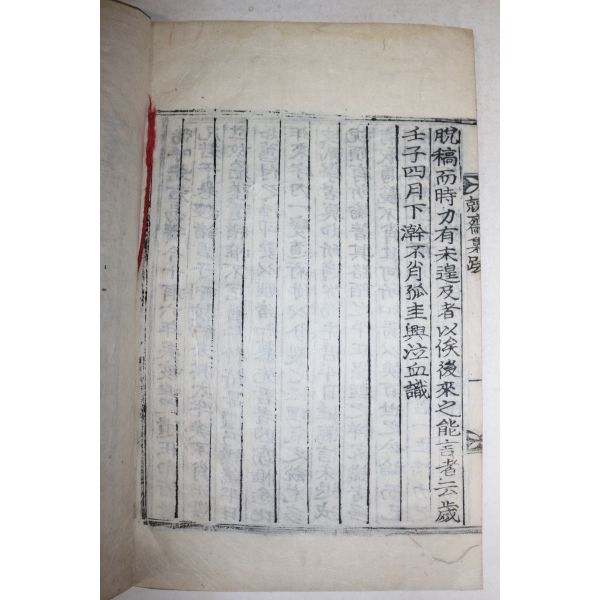 脫稿而時力有未遑及者以俟後來之能言者云歲
壬子四月下澣不肖孤圭興泣血識
齋集跋
一